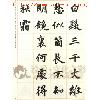 白髮三千丈
愁似個長不
明鏡裏何處得
秋霜